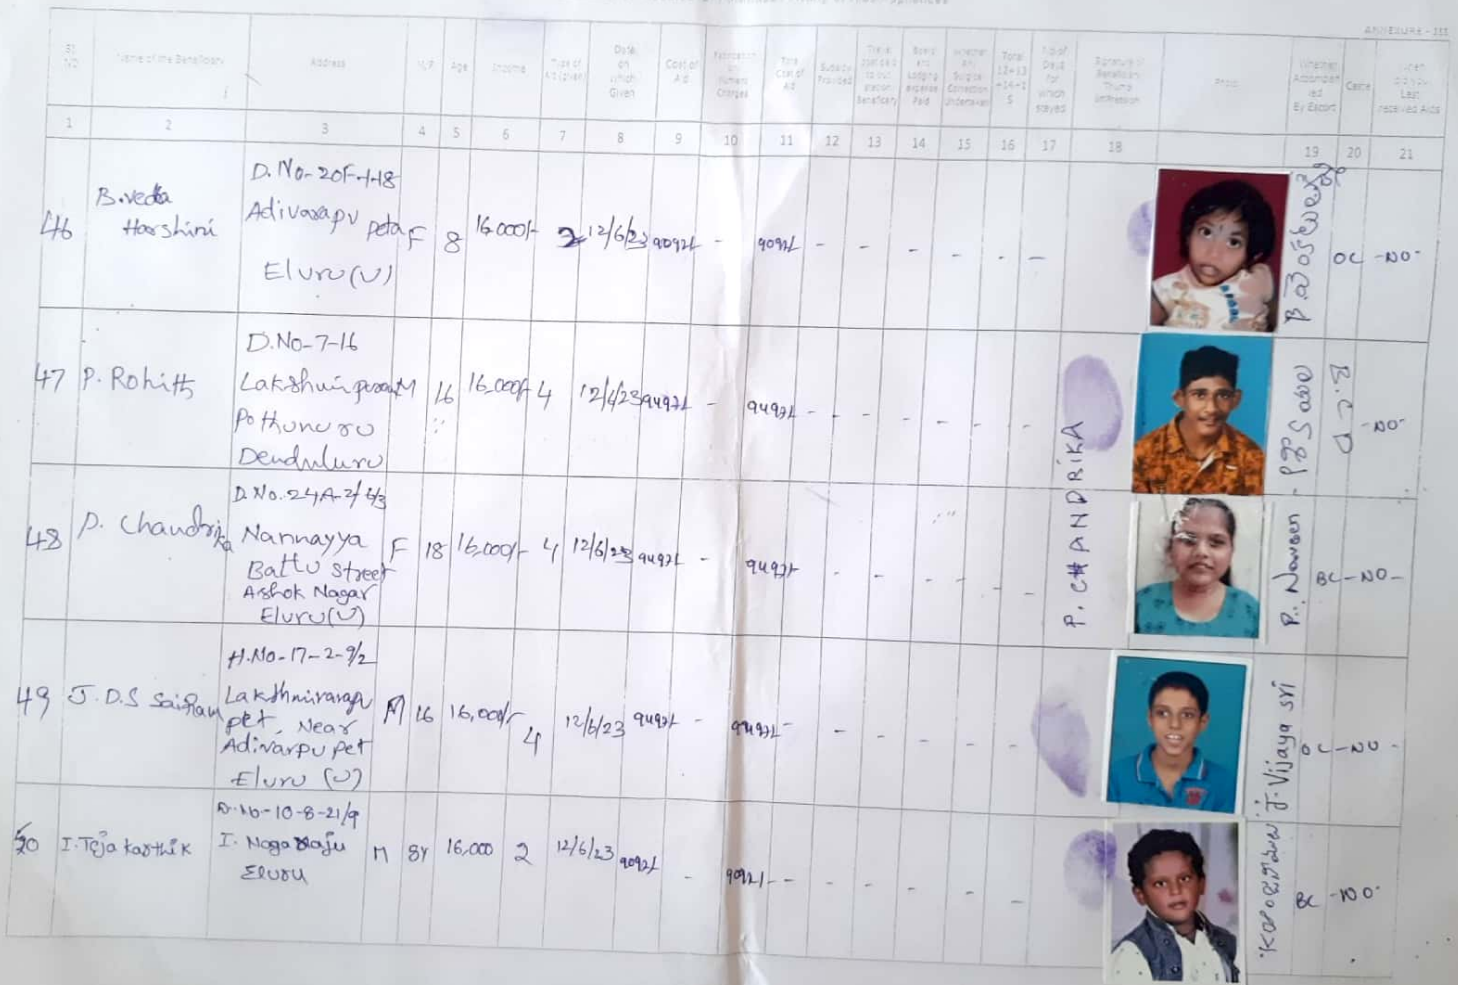 ANNEXURE - III
Name of the Beneficiary
Address
Age
Income
Type of Aid (given)
Date on which Given
Cost of Aid
Total Cost of Aid
Subsidy Provided
Board and Lodging expense Paid
No of Days for which stayed
Signature of Beneficiary Thump Impression
Photo
Whether Accompanied By Escort
Caste
1 2 3 4 5 6 7 8 9 10 11 12 13 14 15 16 17 18 19 20 21
46 B.veda Harshini
D.No-20F-1-18
Adivarapu peta
Eluru(U)
F 8 16,000/- 2 12/6/23 9092/- - 9092/- - - - - - -
OC -NO-
47 P. Rohith
D.No-7-16
Pothunuru
Denduluru
M 16 16,000/- 4 12/6/23 9497/- - 9497/- - - - - - -
-NO-
48 P. Chandrika
Nannayya
Battu Street
Ashok Nagar
Eluru(U)
F 18 16,000/- 4 12/6/23 9497/- - 9497/- - - - - - -
P. CHANDRIKA
P. Naveen
BC -NO-
49 J.D.S SaiRam
H.No-17-2-9/2
pet, Near
Adivarpu pet
Eluru (U)
M 16 16,000/- 4 12/6/23 9497/- - 9497/- - - - - - -
J. Vijaya sri
OC -NO-
50 I. Teja karthik
D.No-10-8-21/9
I. Nagaraju
Eluru
M 8Y 16,000 2 12/6/23 9092/- - 9092/- - - - - - -
BC -NO-